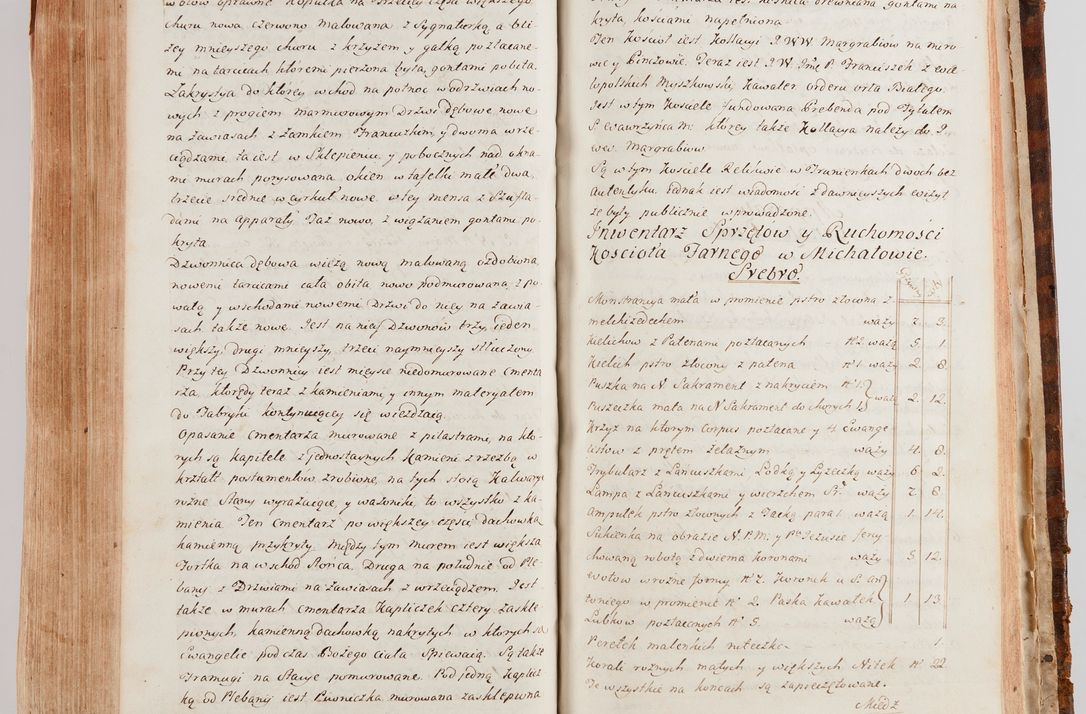 w ołow oprawne Kopułka na
churu nowa czerwono malowana z Sygnaturką a bli-
zey mnieyszego churu z krzyżem y gałką pozłacane-
mi na tarcicach ktoremi pierzona była, gontami pobita.
Zakrystya do ktorey wchod na połnoc w odrzwiach no-
wych z progiem marmurowym Drzwi dębowe nowe
na zawiasach z zamkiem Francuzkim, y dwoma wrze-
ciądzami, ta iest w Sklepieniu, y pobocznych nad okna-
mi murach porysowana, okien w tafelki małe dwa,
trzecie srednie w cyrkuł nowe, w tey mensa z Szufla-
dami na apparaty. Taż nowo, z wiązaniem gontami po-
kryta.
Dzwonnica dębowa wieżą nową malowaną ozdobiona
nowemi tarcicami cała obita nowo podmurowana, z po-
wałą y wschodami nowemi Drzwi do niey na zawia-
sach także nowe. Jest na niey Dzwonow trzy, ieden
większy, drugi mnieyszy, trzeci naymnieyszy stłuczony.
Przy tey Dzwonnicy iest mieysce niedomurowane Cmenta-
rza, ktorędy teraz z kamieniami y innym materyałem
do Fabryki kontynuiącey się wieżdżaią.
Opasanie Cmentarza murowane z pilastrami, na kto-
rych są kapitele z jednostaynych kamieni z rzeźbą w
kształt postumentow zrobione, na tych stoią Kalwarye
rożne Stany wyrażaiące, y wazoniki, to wszystko z ka-
mienia. Ten Cmentarz po większey częsci dachowką
kamienną przykryty. Między tym murem iest większa
Fortka na wschod Słońca, Druga na południe od Ple-
banij z Drzwiami na zawiasach z wrzeciądzem. Jest
także w murach Cmentarza Kapliczek cztery zaskle-
pionych, kamienną dachowką nakrytych w ktorych są
Ewangelie podczas Bożego ciała Spiewaią. Są także
Framugi na Stacye pomurowane. Pod iedną Kaplicz-
ką od Plebanij iest Piwniczka murowana zasklepiona
iest Kosnica drewniana gontami na
kryta, kosciami napełniona.
Ten Kościoł iest Kollacyi J.WW. Margrabiow na miro
wie y Pinczowie. Teraz iest J.W. Jmć P. Franciszek z Wie-
lopolskich Myszkowski, Kawaler orderu orła Białego.
Jest w tym Kosciele fundowana Prebenda pod Tytułem
S. Wawrzyńca M: ktorey także Kollacya należy do J.
WW. Margrabiow.
Są w tym Kosciele Relikwie w Trumienkach dwoch bez
autentyku. Jednak iest wiadomość z dawnieyszych wizyt
że były publicznie wprowadzone.
Inwentarz Sprzętow y Ruchomosci
Koscioła Farnego w Michałowie.
Srebro.
Grzywny Łuty
Monstrancya mała w promienie pstro złocona z
melchizedechem waży 7. 3.
Kielichow z Patenami pozłacanych N° 2. ważą 5. 1.
Kielich pstro złocony z pateną N° 1. waży 2. 8.
Puszka na N. Sakrament z nakryciem N° 1.
Puszeczka mała na N Sakrament do chorych 1. waż: 2. 12.
Krzyż na ktorym Corpus pozłacane y 4 Ewange
listow z prętem żelaznym waży 4. 8.
Trybularz z Łancuszkami Łodką y Łyżeczką ważą 6 2.
Lampa z Łancuszkami y wierzchem Sr. waży 7. 6
Ampułek pstro złoconych z Tacką para 1. ważą 1. 14.
Sukienka na obrazie N.P.M: y Pa Jezusie feny-
chowaną robotą z dwiema koronami waży 5 12.
Wotow w rożne formy N° 7. Koronek u S. An
toniego w promieniu N° 2. Paska kawałek 1. 13.
Łubkow pozłacanych N° 5. ważą
Perełek maleńkich niteczka 1.
Korali rożnych małych y większych Nitek N° 22.
Te wszystkie na końcach są zapieczętowane.
Miedź